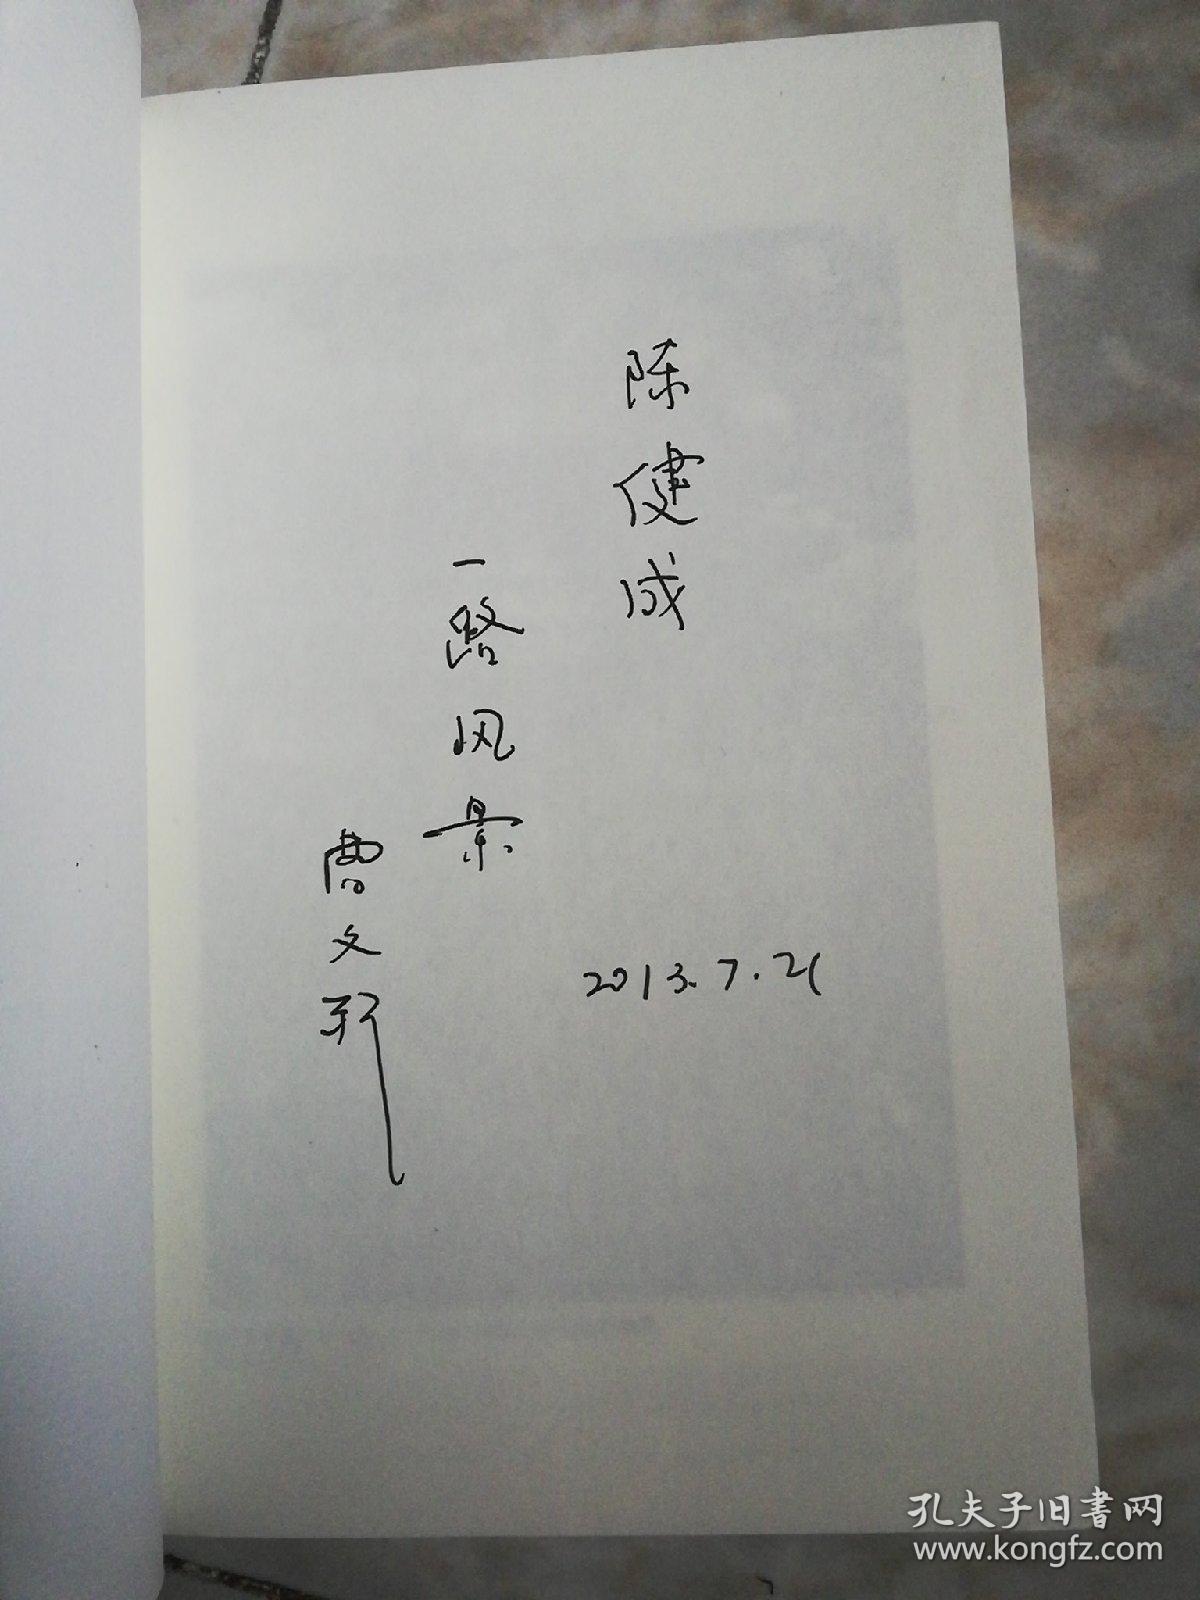 陈健成
一路风景
曹文轩
2013.7.21
孔夫子旧書网
www.kongfz.com